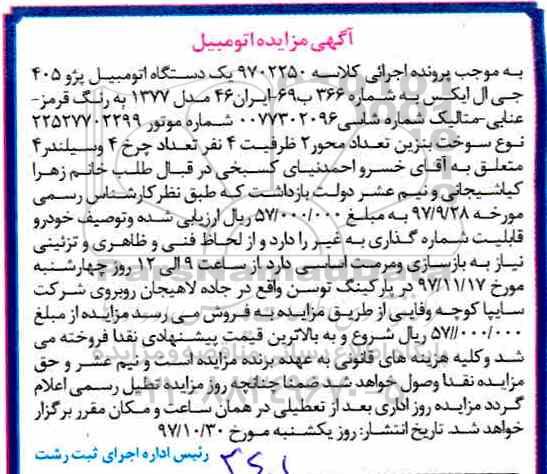 آگهی مزایده اتومبیل
به موجب پرونده اجرائی کلاسه ۹۷۰۲۲۵۰ یک دستگاه اتومبیل پژو ۴۰۵
جی ال ایکس به شماره ۳۶۶ ب۶۹-ایران۴۶ مدل ۱۳۷۷ به رنگ قرمز-
عنابی-متالیک شماره شاسی ۰۰۷۷۳۰۲۰۹۶ شماره موتور ۲۲۵۲۷۷۰۲۳۹۹
نوع سوخت بنزین تعداد محور۲ ظرفیت ۴ نفر تعداد چرخ ۴ وسیلندر۴
متعلق به آقای خسرو احمدنیای کسبخی در قبال طلب خانم زهرا
کیاشیجانی و نیم عشر دولت بازداشت که طبق نظر کارشناس رسمی
مورخه ۹۷/۹/۲۸ به مبلغ ۵۷/۰۰۰/۰۰۰ ریال ارزیابی شده وتوصیف خودرو
قابلیت شماره گذاری به غیر را دارد و از لحاظ فنی و ظاهری و تزئینی
نیاز به بازسازی ومرمت اساسی دارد از ساعت ۹ الی ۱۲ روز چهارشنبه
مورخ ۹۷/۱۱/۱۷ در پارکینگ توسن واقع در جاده لاهیجان روبروی شرکت
سایپا کوچه وفایی از طریق مزایده به فروش می رسد مزایده از مبلغ
۵۷//۰۰۰/۰۰۰ ریال شروع و به بالاترین قیمت پیشنهادی نقدا فروخته می
شد وکلیه هزینه های قانونی به عهده برنده مزایده است و نیم عشر و حق
مزایده نقدا وصول خواهد شد ضمنا چنانچه روز مزایده تطیل رسمی اعلام
گردد مزایده روز اداری بعد از تعطیلی در همان ساعت و مکان مقرر برگزار
خواهد شد. تاریخ انتشار: روز یکشنبه مورخ ۹۷/۱۰/۳۰
رئیس اداره اجرای ثبت رشت